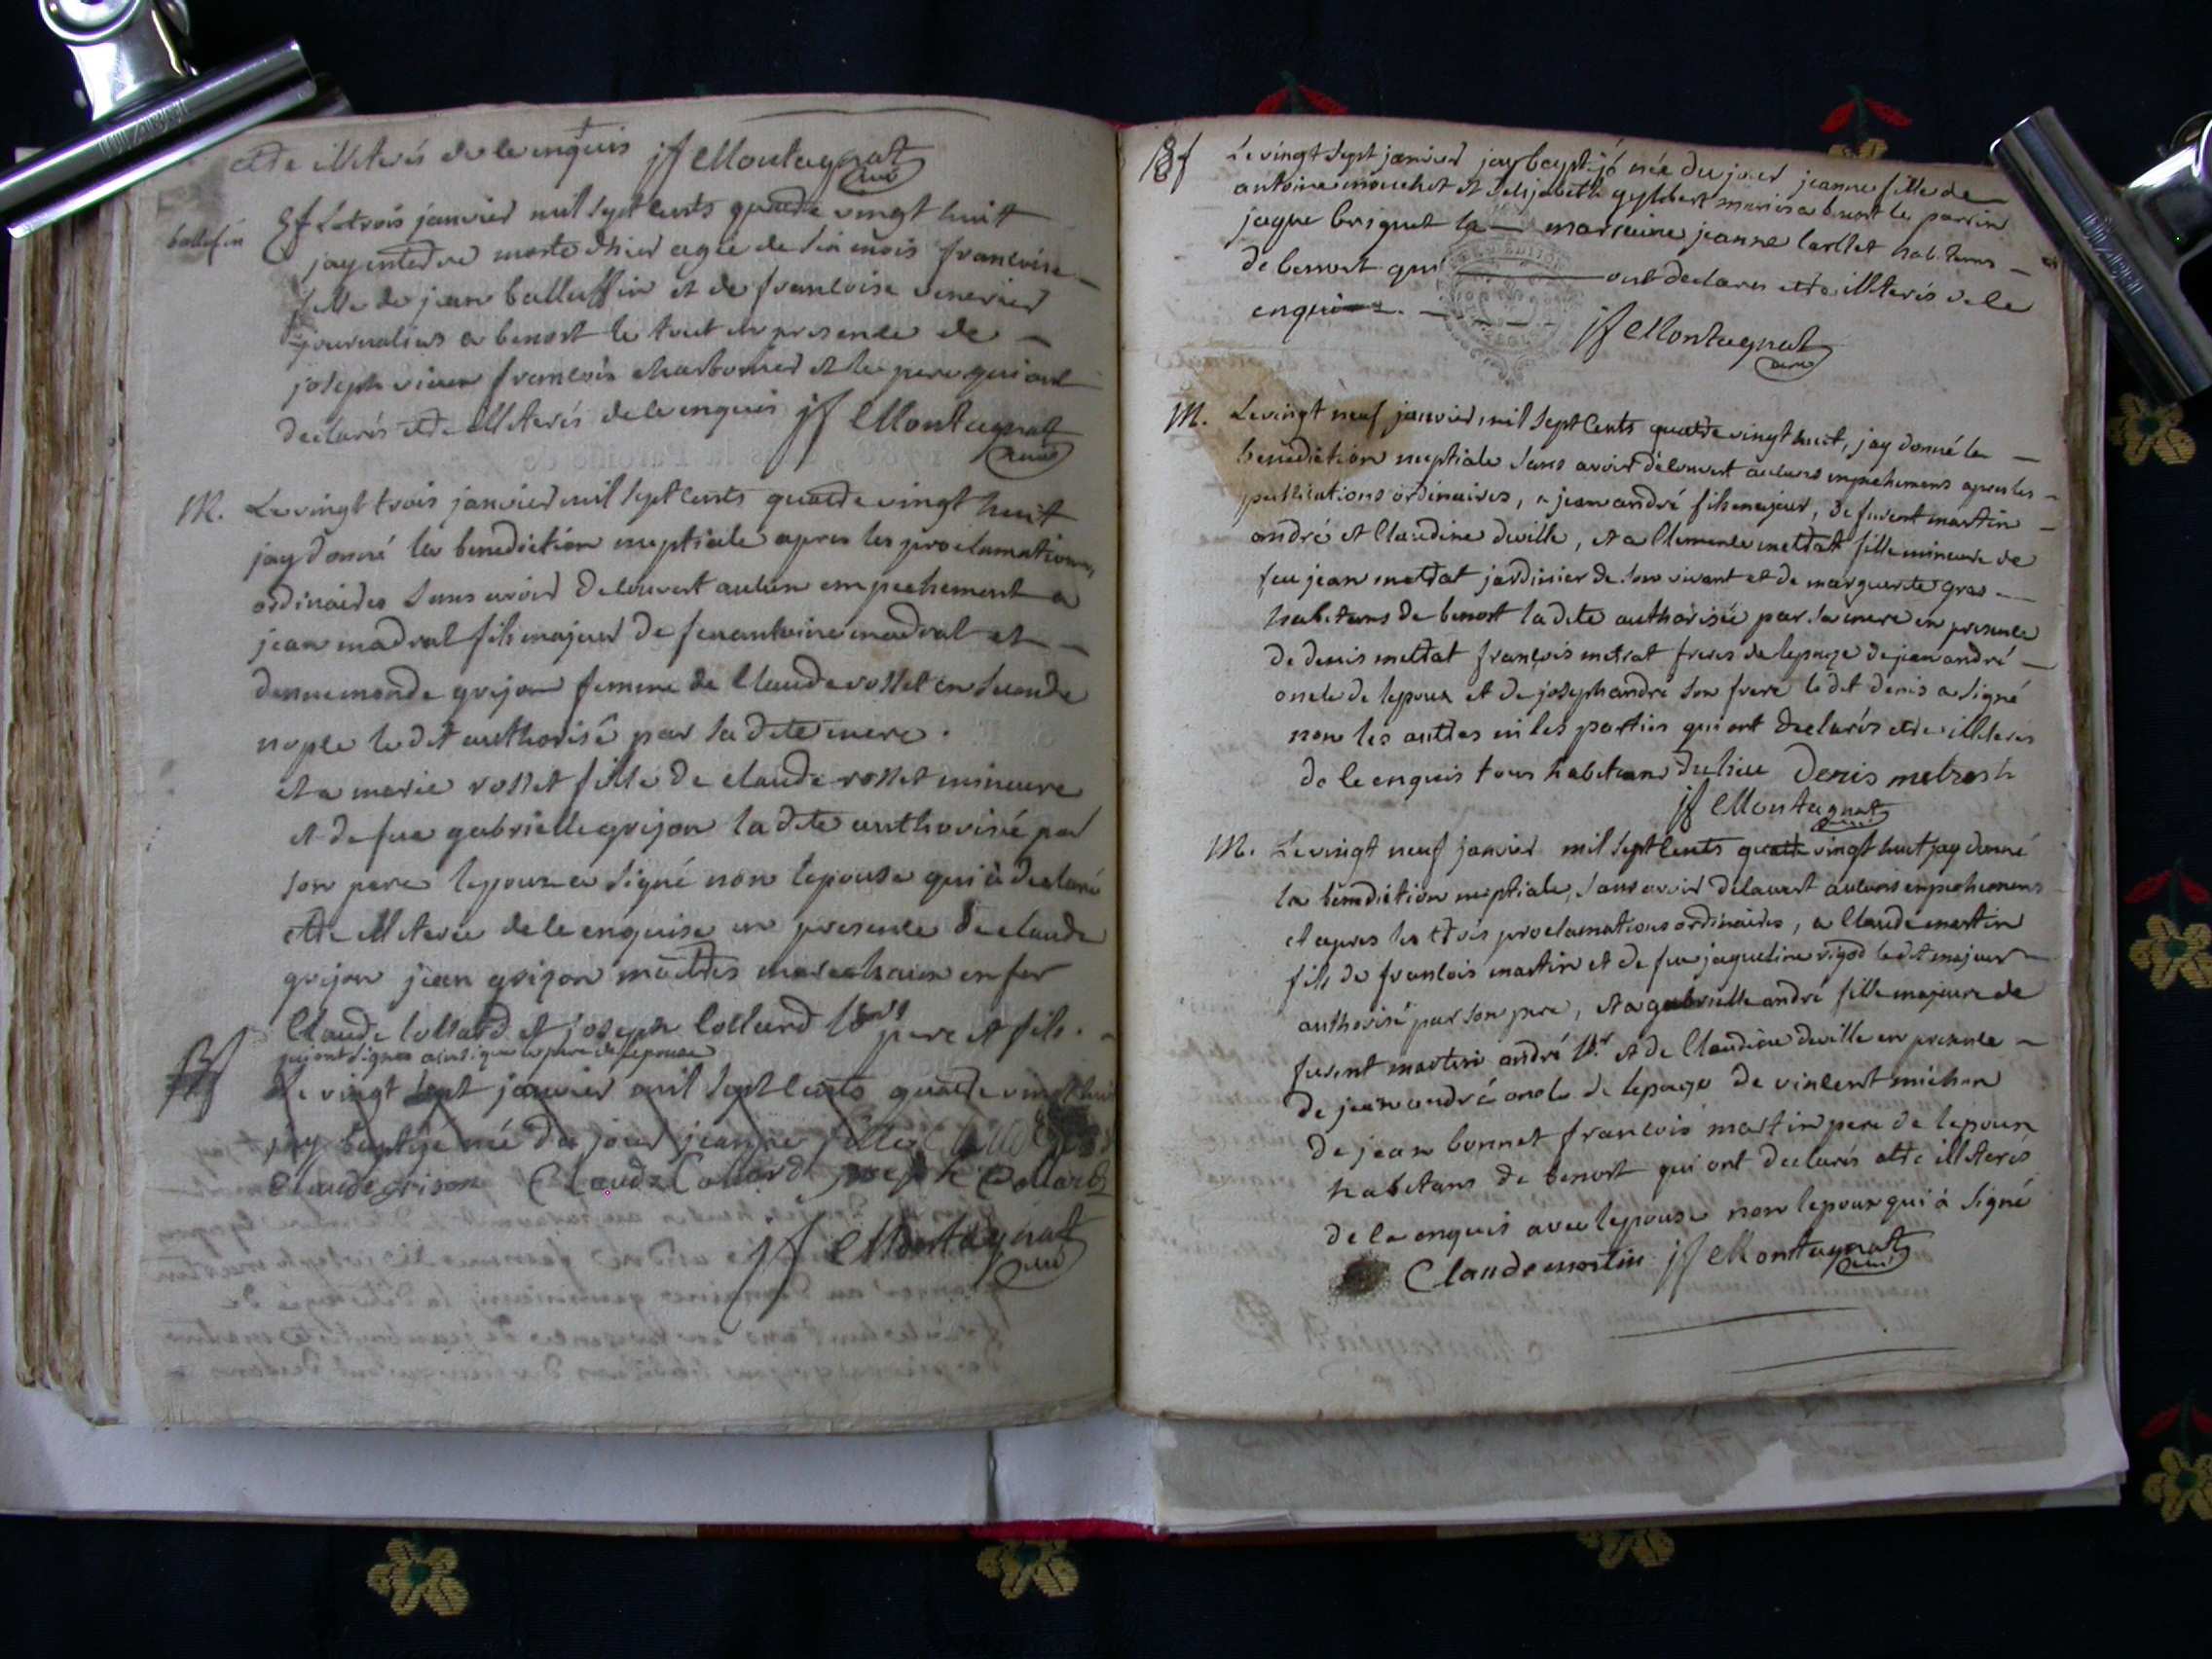 etre illiterés de le enquis jf Montagnat curé
ballufin
Ef Le trois janvier mil sept cents quatre vingt huit
jay enterre morte dhier agée de six mois francoise
fille de jean balluffin et de francoise
journaliers a benost le tout en presence de
joseph francois charbonier et le pere qui ont
declarés etre illiterés de le enquis jf Montagnat curé
M. Le vingt trois janvier mil sept cents quatre vingt huit
jay donné la benediction nuptiale apres les proclamations
ordinaires sans avoir decouvert aucun empechement a
jean madval fils majeur de feu antoine madval et
dannemonde grijon femme de Claude rosset en seconde
nopce le dit authorisé par la dite mere.
et a marie rosset fille de claude rosset mineure
et de fue gabrielle grijon la dite authorisée par
son pere lepoux a signé non lepouse qui à declaré
etre illiterée de le enquise en presence de claude
grijon jean grizon maitres marechaux en fer
Claude Collard et joseph Collard pere et fils.
qui ont signes ainsi que le pere de lepouse
Le vingt sept janvier mil sept cents quatre vingt huit
jay baptisé née du jour jeanne fille
Claude grison Claude Collard joseph Collard
jf Montagnat curé
Bf Le vingt sept janvier jay baptisé née du jour jeanne fille de
antoine mouchet et delisabeth gylibert mariés a benost le parrin
jaque briquet la marraine jeanne carllet habitans
de benost qui ont declarés etre illiterés de le
enquis.
jf Montagnat curé
M. Le vingt neuf janvier mil sept cents quatre vingt huit, jay donné la
benediction nuptiale sans avoir decouvert aucuns empechemens apres les
publications ordinaires, a jean andré fils majeur, de furent martin
andré et Claudine deville, et a Clemence mettat fille mineure de
feu jean mettat jardinier de son vivant et de marguerite gras
habitans de benost la dite authorisée par sa mere en presence
de denis mettat françois metrat freres de lepouze de jean andré
oncle de lepoux et de joseph andré son frere le dit denis a signé
non les autres ni les parties qui ont declarés etre illiterés
de le enquis tous habitans du lieu Denis metrat
jf Montagnat curé
M. Le vingt neuf janvier mil sept cents quatre vingt huit jay donné
la benediction nuptiale, sans avoir decouvert aucuns empechemens
et apres les trois proclamations ordinaires, a Claude martin
fils de francois martin et de fue jaqueline rigod le dit majeur
authorisé par son pere, et a gabrielle andré fille majeure de
furent martin andré et de Claudine deville en presence
de jean andré oncle de lepouze de vincent michon
de jean bonnet francois martin pere de lepoux
habitans de benost qui ont declarés etre illiterés
de le enquis avec lepouse non lepoux qui à signé
Claude martin jf Montagnat curé